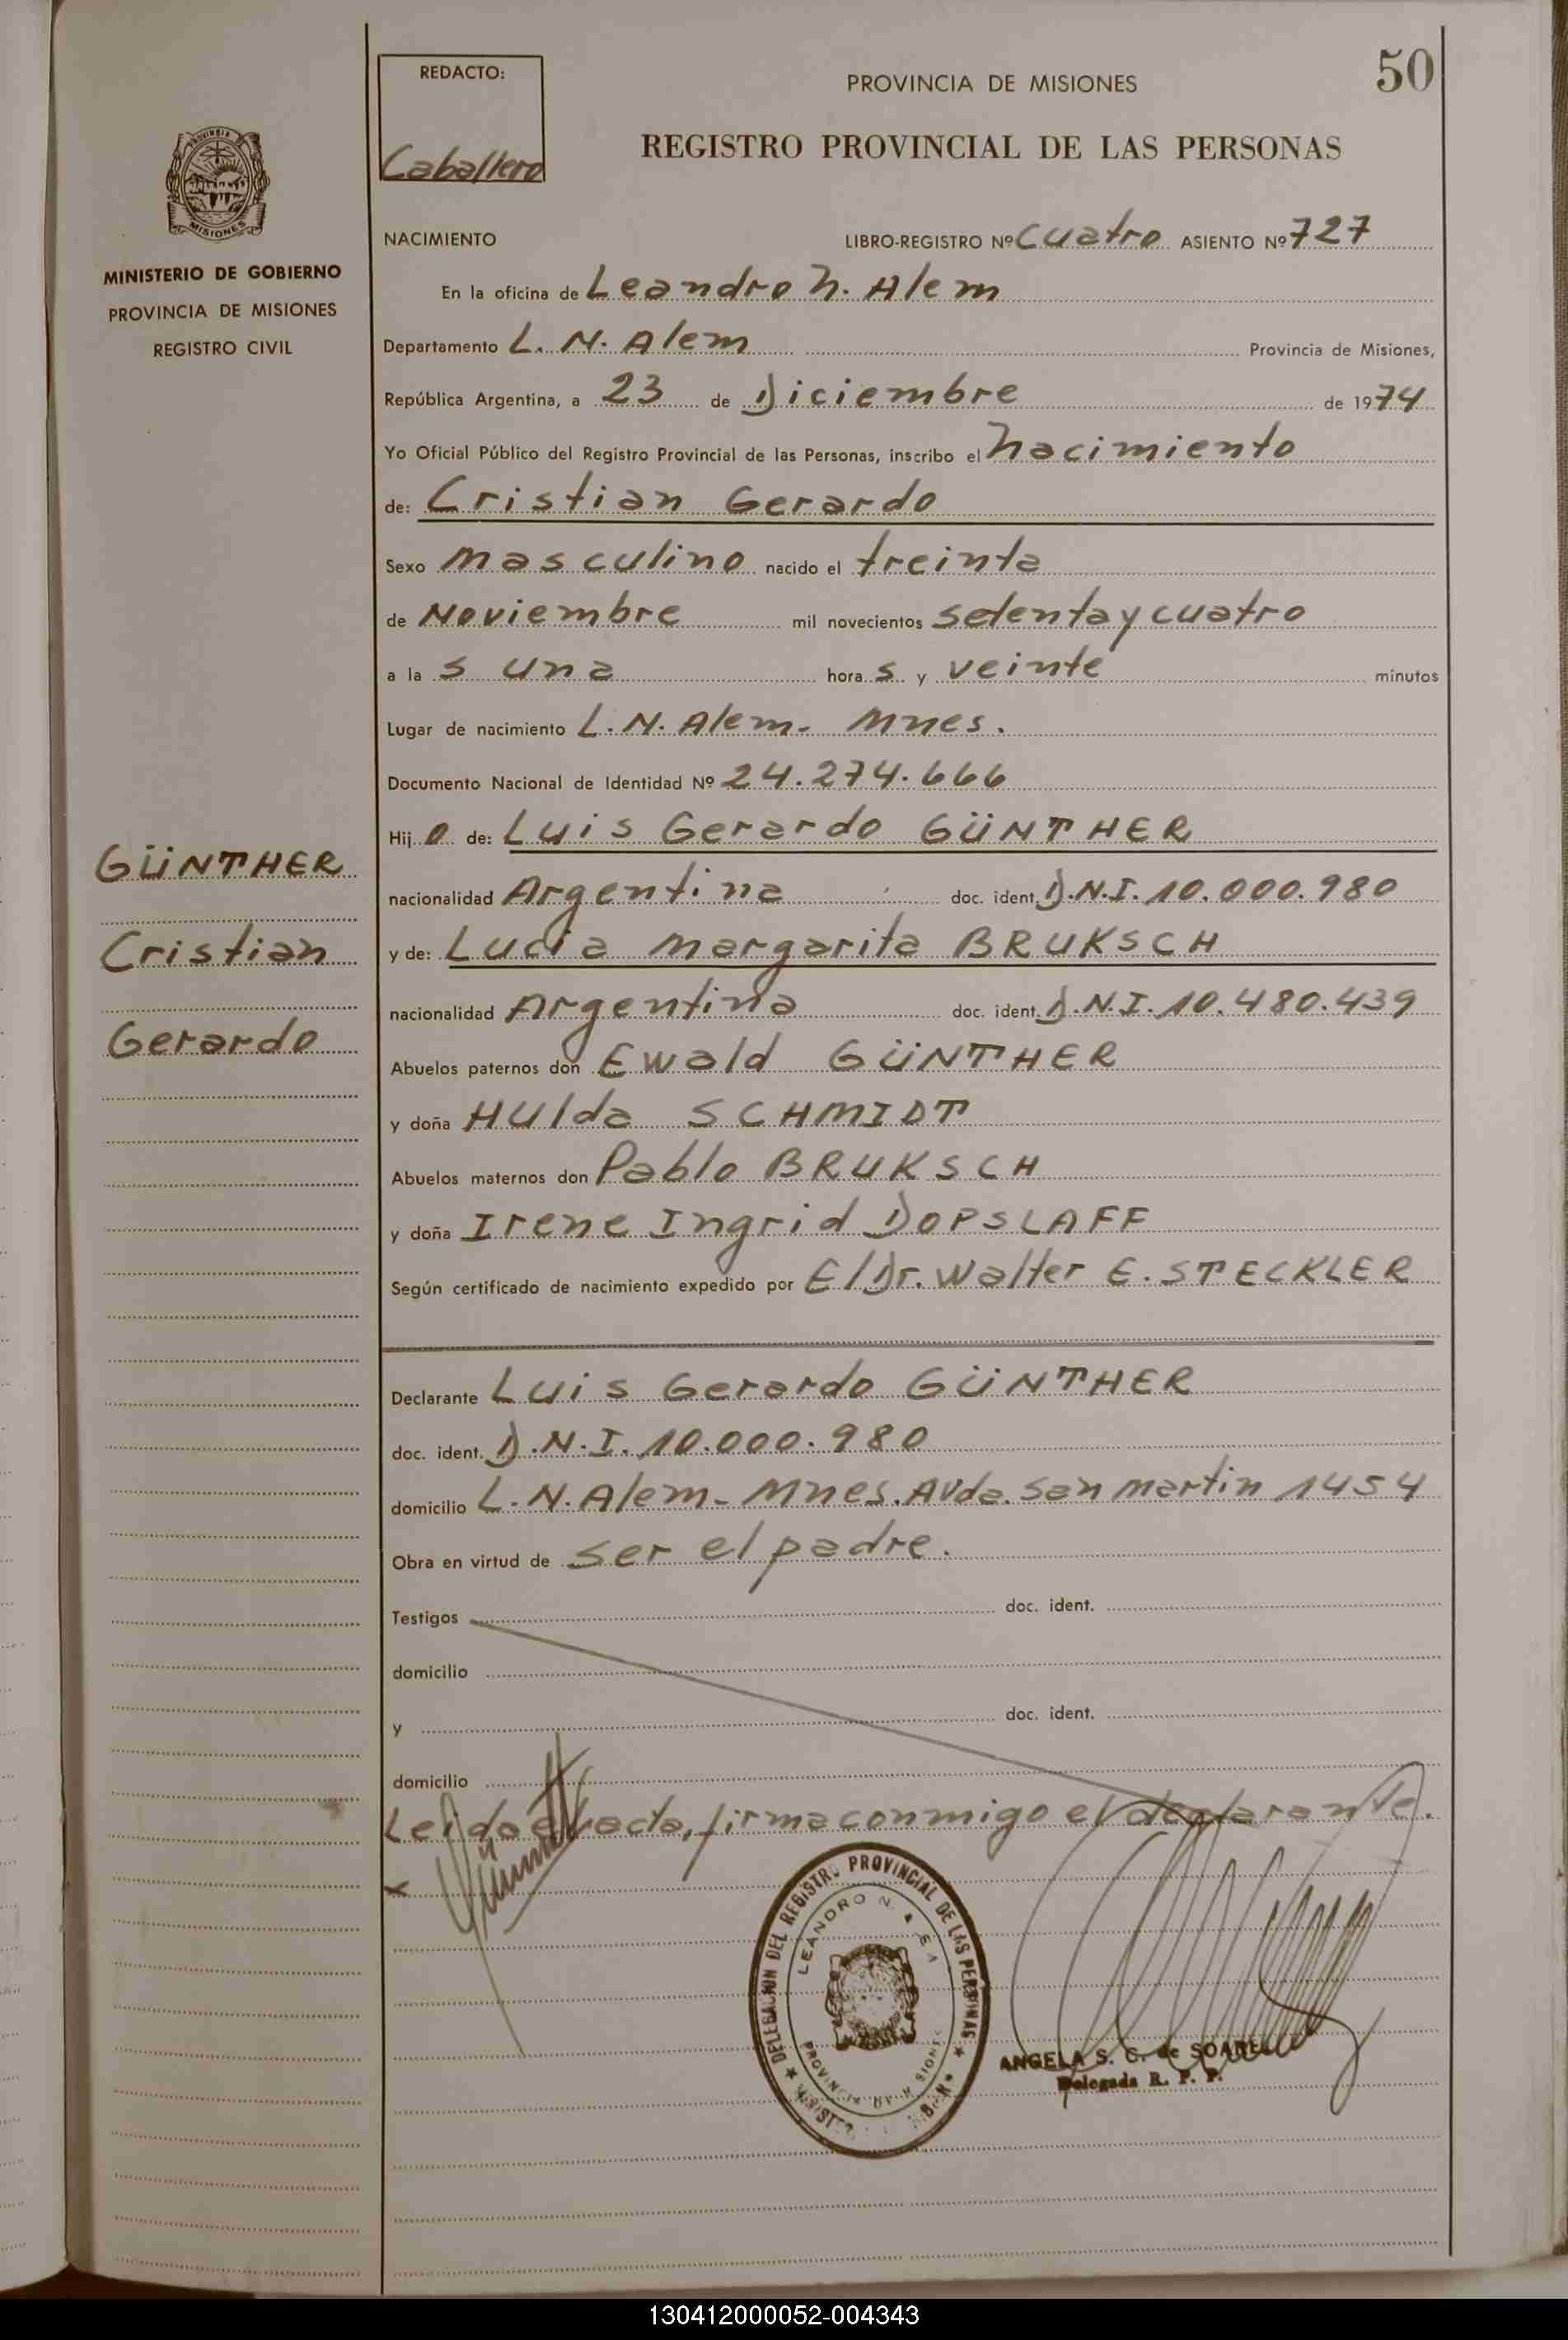 50
REDACTO:
Caballero
PROVINCIA DE MISIONES
REGISTRO PROVINCIAL DE LAS PERSONAS
PROVINCIA
MISIONES
MINISTERIO DE GOBIERNO
PROVINCIA DE MISIONES
REGISTRO CIVIL
NACIMIENTO LIBRO-REGISTRO Nº Cuatro ASIENTO Nº 727
En la oficina de Leandro N. Alem
Departamento L. N. Alem Provincia de Misiones,
República Argentina, a 23 de Diciembre de 1974
Yo Oficial Público del Registro Provincial de las Personas, inscribo el nacimiento
de: Cristian Gerardo
Sexo masculino nacido el treinta
de Noviembre mil novecientos setenta y cuatro
a la s una hora s y veinte minutos
Lugar de nacimiento L. N. Alem - Mnes.
Documento Nacional de Identidad Nº 24.274.666
Hij o de: Luis Gerardo GÜNTHER
nacionalidad Argentina doc. ident. D.N.I. 10.000.980
y de: Lucia Margarita BRUKSCH
nacionalidad Argentina doc. ident. D.N.I. 10.480.439
Abuelos paternos don Ewald GÜNTHER
y doña Hulda SCHMIDT
Abuelos maternos don Pablo BRUKSCH
y doña Irene Ingrid DOPSLAFF
Según certificado de nacimiento expedido por El Dr. Walter E. STECKLER
GÜNTHER
Cristian
Gerardo
Declarante Luis Gerardo GÜNTHER
doc. ident. D.N.I. 10.000.980
domicilio L. N. Alem - Mnes. Avda. San Martin 1454
Obra en virtud de ser el padre.
Testigos doc. ident.
domicilio
y doc. ident.
domicilio
Leida el acta, firma conmigo el declarante.
x
DELEGACION DEL REGISTRO PROVINCIAL DE LAS PERSONAS
LEANDRO N.
ANGELA S. C. de SOAREZ
Delegada R. P. P.
130412000052-004343